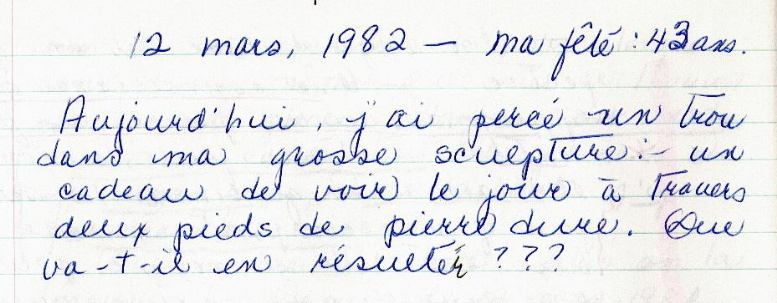 12 mars, 1982 — ma fête : 43 ans.
Aujourd'hui, j'ai percé un trou
dans ma grosse sculpture :- un
cadeau de voir le jour à travers
deux pieds de pierre dure. Que
va-t-il en résulter ???